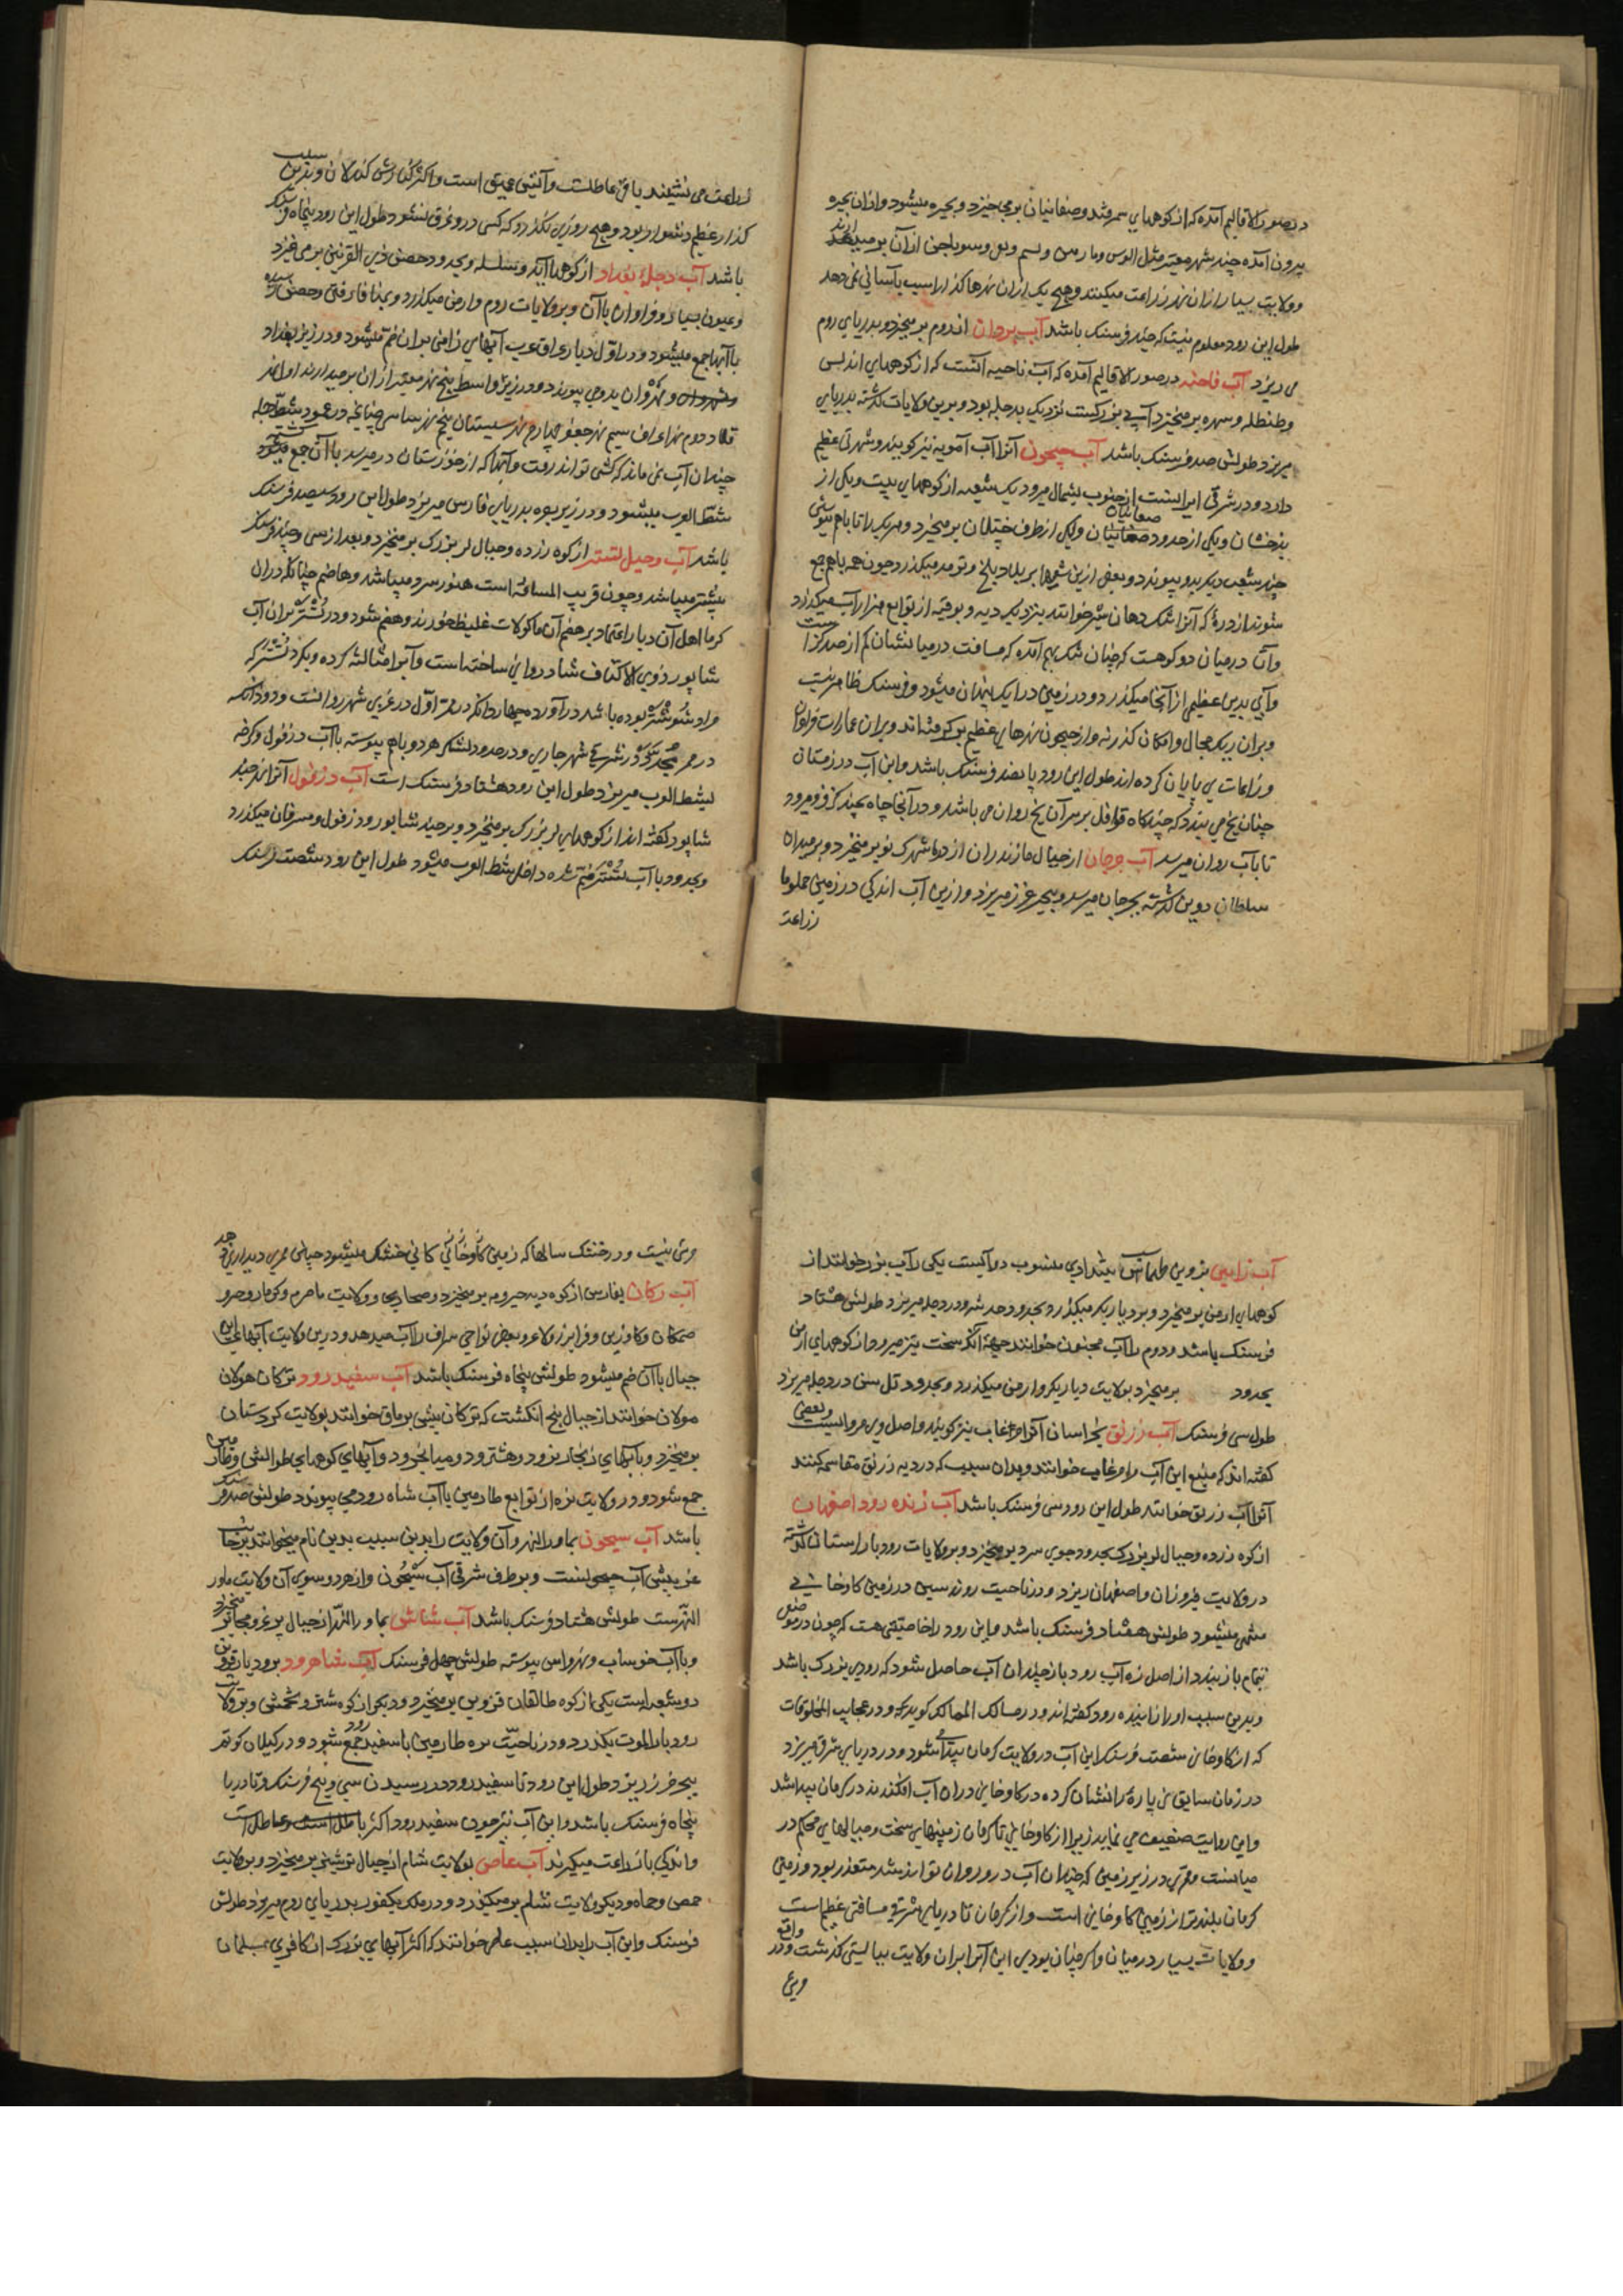 در صور الاقالیم آمده که از کوههای سمرقند و صغانیان برمیخیزد و بحیره میشود و ازان بحیره
بیرون آمده چند شهر معتبر مثل و بسم و از آن برمیدارند
و ولایت بسیار ازان نهر زراعت میکنند و هیچ یک ازان نهرها کذار اسب بآسانی نمی دهد
طول این رود معلوم نیست که چند فرسنک باشد آب بردان از روم برمیخیزد و بدریای روم
می ریزد آب فاحنه در صور الاقالیم آمده که آب ناحیه آنست که از کوههای اندلس
وطنطله و سهره برمیخیزد آبی بزرکست نزدیک بدجله بود و برین ولایات کذشته بدریای
میریزد طولش صد فرسنک باشد آب جیحون آنرا آب آمویه نیز کویند و شهرتی عظیم
دارد و در شرقی ایرانست از جنوب بشمال میرود یک شعبه از کوههای تبت و یکی از
بدخشان و یکی از حدود صغانیان و یکی از طرف ختلان برمیخیزد و هریک را تا باهم
چند شعب دیکر بدو پیوندد و بعضی ازین شعبها بر بلاد بلخ و ترمد میکذرد چون همه باهم جمع
شوند از درهٔ که آنرا تنک دهان شیر خوانند بنزدیک دیه و بوقیه از توابع هزاراسب میکذرد
وآن درمیان دو کوهست که چنان تنک بهم آمده که مسافت درمیانشان کم از صد کز است
وآبی بدین عظیمی از آنجا میکذرد و در زمین در ایک پنهان میشود دو فرسنک ظاهر نیست
و بران ریک مجال و امکان کذر نه و از جیحون نهرهای عظیم بر کرفته اند و بران عمارات فراوان
و زراعات بی پایان کرده اند طول این رود پانصد فرسنک باشد و این آب در زمستان
چنان یخ می بندد که چند کاه قوافل بر سر آن یخ روان می باشد و در آنجا چاه بچند کز فرو میرود
تا بآب روان میرسد آب جرجان از جبال مازندران از درهٔ شهرک نو برمیخیزد و بر میدان
سلطان دوین کذشته بجرجان میرسد و ببحر خزر میریزد و ازین آب اندکی در زمین حملوما
زراعت
زراعت می نشیند باقی عاطلست و آبیش عمیق است و اکثر کنارش کندلان و بدین سبب
کذار عظیم دشوار بود و هیچ روزی نکذرد که کسی درو غرق نشود طول این رود پنجاه فرسنک
باشد آب دجلهٔ بغداد از کوههای آمد و سلسله و بحدود حصن ذی القرنین برمی خیزد
و عیون بسیار و فراوان با آن و بر ولایات روم و ارمن میکذرد و بمیافارقین و حصن رسیده
با آبها جمع میشود و در اول دیار عراق عرب آبهای زابین بران ضم میشود و در زیر بغداد
و نهروان و نهروان بدو می پیوندد و در زیر واسط پنج نهر معتبر ازان برمیدارند اول نهر
قلاد دوم نهر اعراف سیم نهر جعفر چهارم نهر سیستان پنجم نهر ساسی چنانچه در عمود شط دجله
چندان آب نمی ماند که کشتی تواند رفت و آبها که از خوزستان درمیرسد با آن جمع میشود
شط العرب میشود و در زیر بصره بدریای فارس میریزد طول این رود سیصد فرسنک
باشد آب دجیل تستر از کوه زرده و جبال لر بزرک برمیخیزد و بعد از سی و چند فرسنک
بیشتر میباشد و چون قریب المسافه است هنوز سرد میباشد و هاضم چنانکه دران
کرما اهل آن دیار اعتماد بر هضم آن ماکولات غلیظ خورند و هضم شود و در تستر بران آب
شاپور ذوی الاکتاف شادروانی ساخته است و آنرا مثالثه کرده و بکرد تستر که
مراد شوشتر بوده باشد درآورده چهاردانکه در مرتبه اول در غربی شهر روانست و دودانکه
در ممر مجدی در شرقی شهر جاری و در حدود لشکر هر دو باهم پیوسته با آب دزفول و کرخه
بشط العرب میریزد طول این رود هشتاد فرسنک است آب دزفول آنرا نیز جند
شاپور کفته اند از کوههای لر بزرک برمیخیزد و بر جند شاپور و دزفول و مسرقان میکذرد
و بحدود با آب تستر ضم شده داخل شط العرب میشود طول این رود شصت فرسنک
آب زابین بزوین طهماسب پیشدادی منسوب دو آبست یکی را آب بزرک خوانند از
کوههای ارمن برمیخیزد و بر دیار بکر میکذرد و بحدود حدیثه در دجله میریزد طولش هشتاد
فرسنک باشد و دوم را آب مجنون خوانند جهة آنکه سخت تیز میرود از کوههای ارمن
بحدود برمیخیزد بولایت دیاربکر و ارمن میکذرد و بحدود تل سن در دجله میریزد
طول سی فرسنک آب رزنق بخراسان آنرا مرغاب نیز کویند و اصل وی مروابست و بعضی
کفته اند که منبع این آب را مرغاب خوانند و بدان سبب که در دیه رزنق مقاسمه کنند
آنرا آب رزنق خوانند طول این رود سی فرسنک باشد آب زنده رود اصفهان
از کوه زرده و جبال لر بزرک بحدود جوی سرد برمیخیزد و بر ولایات رودبار لرستان کذشته
در ولایت فیروزان و اصفهان ریزد و در ناحیت روذسین در زمین کاوخانی
منتهی میشود طولش هفتاد فرسنک باشد و این رود را خاصیتی هست که چون در موضعی
بتمام بازبندد از اصل زه آب رود باز چندان آب حاصل شود که رودی بزرک باشد
و بدین سبب اورا زاینده رود کفته اند و در مسالک الممالک کوید که و در عجایب المخلوقات
که از کاوخانی شصت فرسنک این آب در ولایت کرمان پیدا شود و در دریای شرقی میریزد
در زمان سابق نی پاره را نشان کرده در کاوخانی دران آب افکندند در کرمان پیدا شد
و این روایت ضعیف می نماید زیرا از کاوخانی تا کرمان زمینهای سخت و جبالهای محکم در
میانست و ممری در زیر زمین که چندان آب درو روان تواند شد متعذر بود و زمین
کرمان بلندتر از زمین کاوخانی است و از کرمان تا دریای شرقی مسافتی عظیم است
و ولایات بسیار درمیان واقع و اکر چنان بودی این آب را بران ولایت ببایستی کذشت و در
وی
مرئی نیست و در خشک سالها که زمین کاوخانی کانی خشک میشود چنان ممری دیدار نمی دهد
آب زکان بفارس از کوه دیه حیروم برمیخیزد و صحاری و ولایت ماصرم و کوفار و حرو
صمکان و کارزین و قرایزر و لاغر و بعضی نواحی سراف را آب میدهد و درین ولایت آبهای این
جبال با آن ضم میشود طولش پنجاه فرسنک باشد آب سفید رود ترکان هولان
مولان خوانند از جبال پنج انکشت که ترکان بیش برماق خوانند بولایت کردستان
برمیخیزد و با آبهای زنجان رود و هشترود و میانج رود و آبهای کوههای طوالش و طارمین
جمع شود و در ولایت بره از توابع طارمین با آب شاه رود می پیوندد طولش صد فرسنک
باشد آب سیحون بماورالنهر و آن ولایت را بدین سبب بدین نام میخوانند بر جانب
غربیش آب جیحونست و بر طرف شرقی آب سیحون و از هر دو سوی آن ولایت ماور
النهرست طولش هشتاد فرسنک باشد آب شاش بماورالنهر از جبال برمیخیزد
و با آب خوساب و نهرواس پیوسته طولش چهل فرسنک آب شاهرود برودبار قزوین
دو شعبه است یکی از کوه طالقان قزوین برمیخیزد و دیکر از کوه شتر و تخمش و بر ولایت
رودبار الموت بکذرد و در ناحیت بره طارمین با سفید رود جمع شود و در کیلان کوتم
ببحر خزر ریزد طول این رود تا سفید رود در رسیدن سی و پنج فرسنک و تا دریا
پنجاه فرسنک باشد و این آب نیز چون سفید رود اکثر عاطل است
و اندکی بازراعت میکیرند آب عاصی بولایت شام از جبال برمیخیزد و بر ولایت
حمص و حماه و دیکر ولایت شام برمیکذرد و در ملک یکفور بدریای روم میریزد طولش
فرسنک و این آب را بدان سبب عاصی خوانند که اکثر آبهای بزرک از کافری بمسلمان